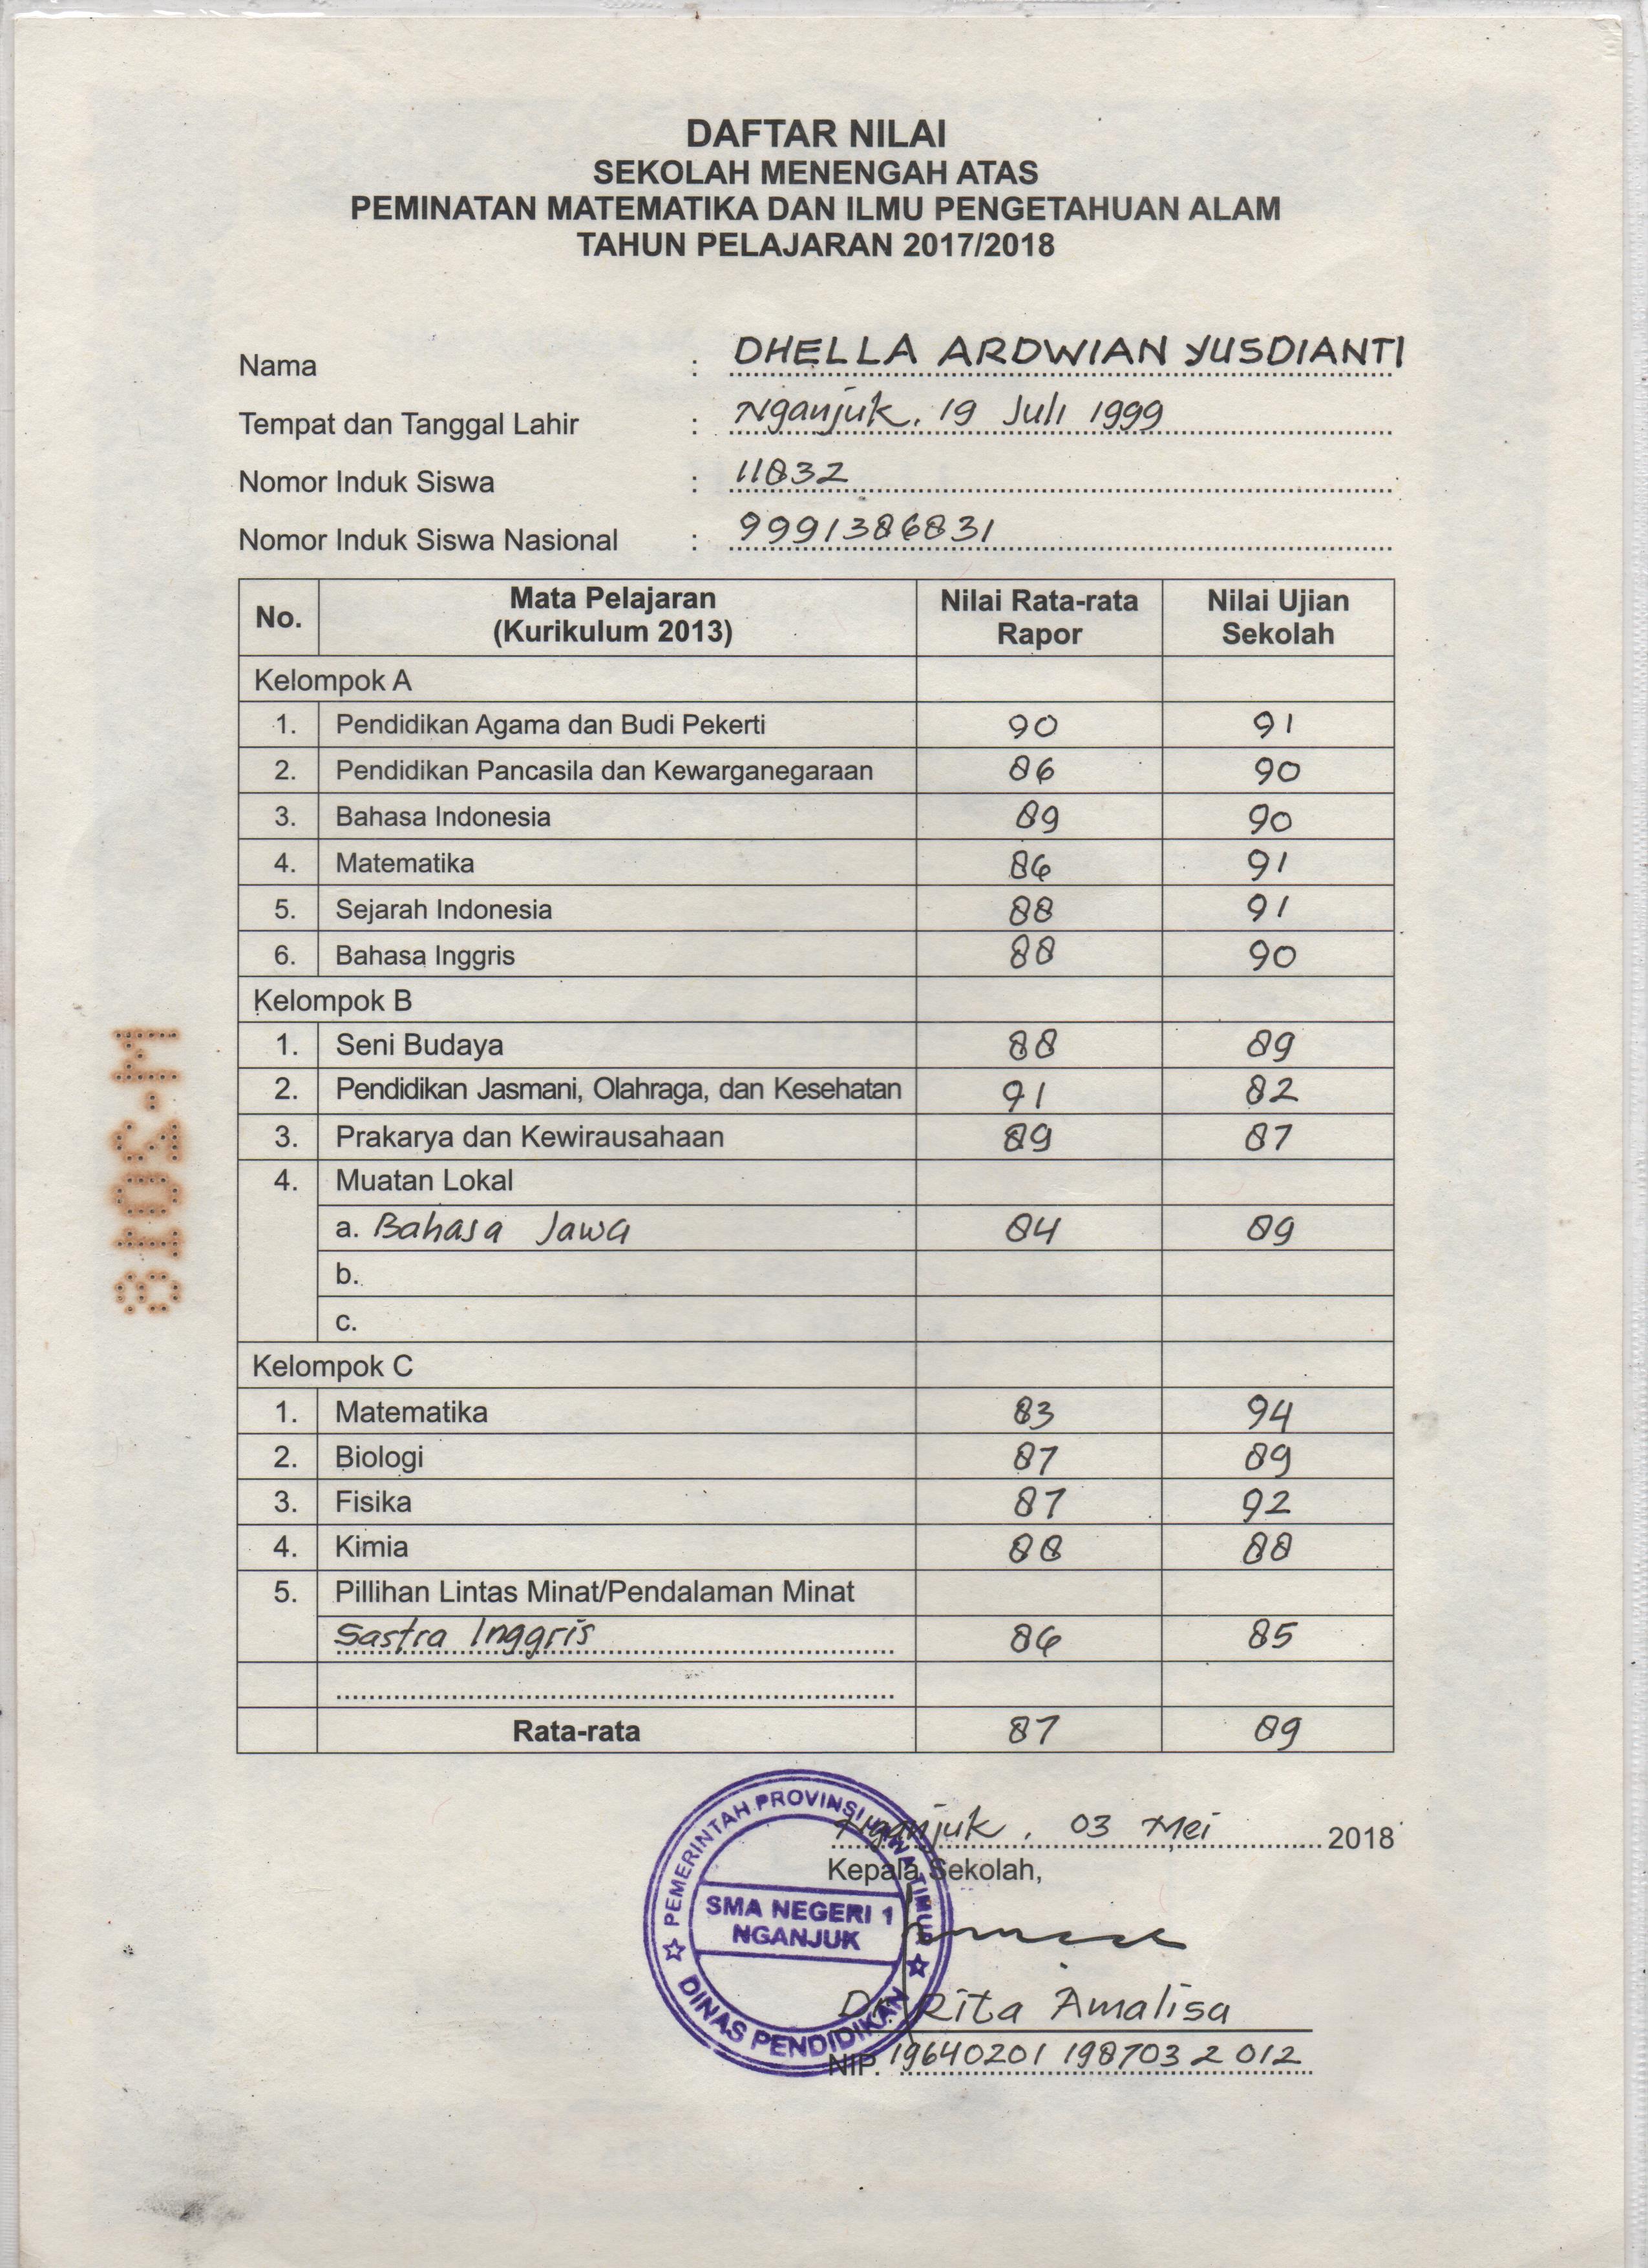 DAFTAR NILAI
SEKOLAH MENENGAH ATAS
PEMINATAN MATEMATIKA DAN ILMU PENGETAHUAN ALAM
TAHUN PELAJARAN 2017/2018
Nama : DHELLA ARDWIAN YUSDIANTI
Tempat dan Tanggal Lahir : Nganjuk, 19 Juli 1999
Nomor Induk Siswa : 11832
Nomor Induk Siswa Nasional : 9991386831
No. Mata Pelajaran (Kurikulum 2013) Nilai Rata-rata Rapor Nilai Ujian Sekolah
Kelompok A
1. Pendidikan Agama dan Budi Pekerti 90 91
2. Pendidikan Pancasila dan Kewarganegaraan 86 90
3. Bahasa Indonesia 89 90
4. Matematika 86 91
5. Sejarah Indonesia 88 91
6. Bahasa Inggris 88 90
Kelompok B
1. Seni Budaya 88 89
2. Pendidikan Jasmani, Olahraga, dan Kesehatan 91 82
3. Prakarya dan Kewirausahaan 89 87
4. Muatan Lokal
a. Bahasa Jawa 84 89
b.
c.
Kelompok C
1. Matematika 83 94
2. Biologi 87 89
3. Fisika 87 92
4. Kimia 88 88
5. Pillihan Lintas Minat/Pendalaman Minat
Sastra Inggris 86 85
Rata-rata 87 89
Nganjuk, 03 Mei 2018
Kepala Sekolah,
PEMERINTAH PROVINSI JAWA TIMUR
SMA NEGERI 1
NGANJUK
DINAS PENDIDIKAN
Dr. Rita Amalisa
NIP. 19640201 198703 2 012
M-2018